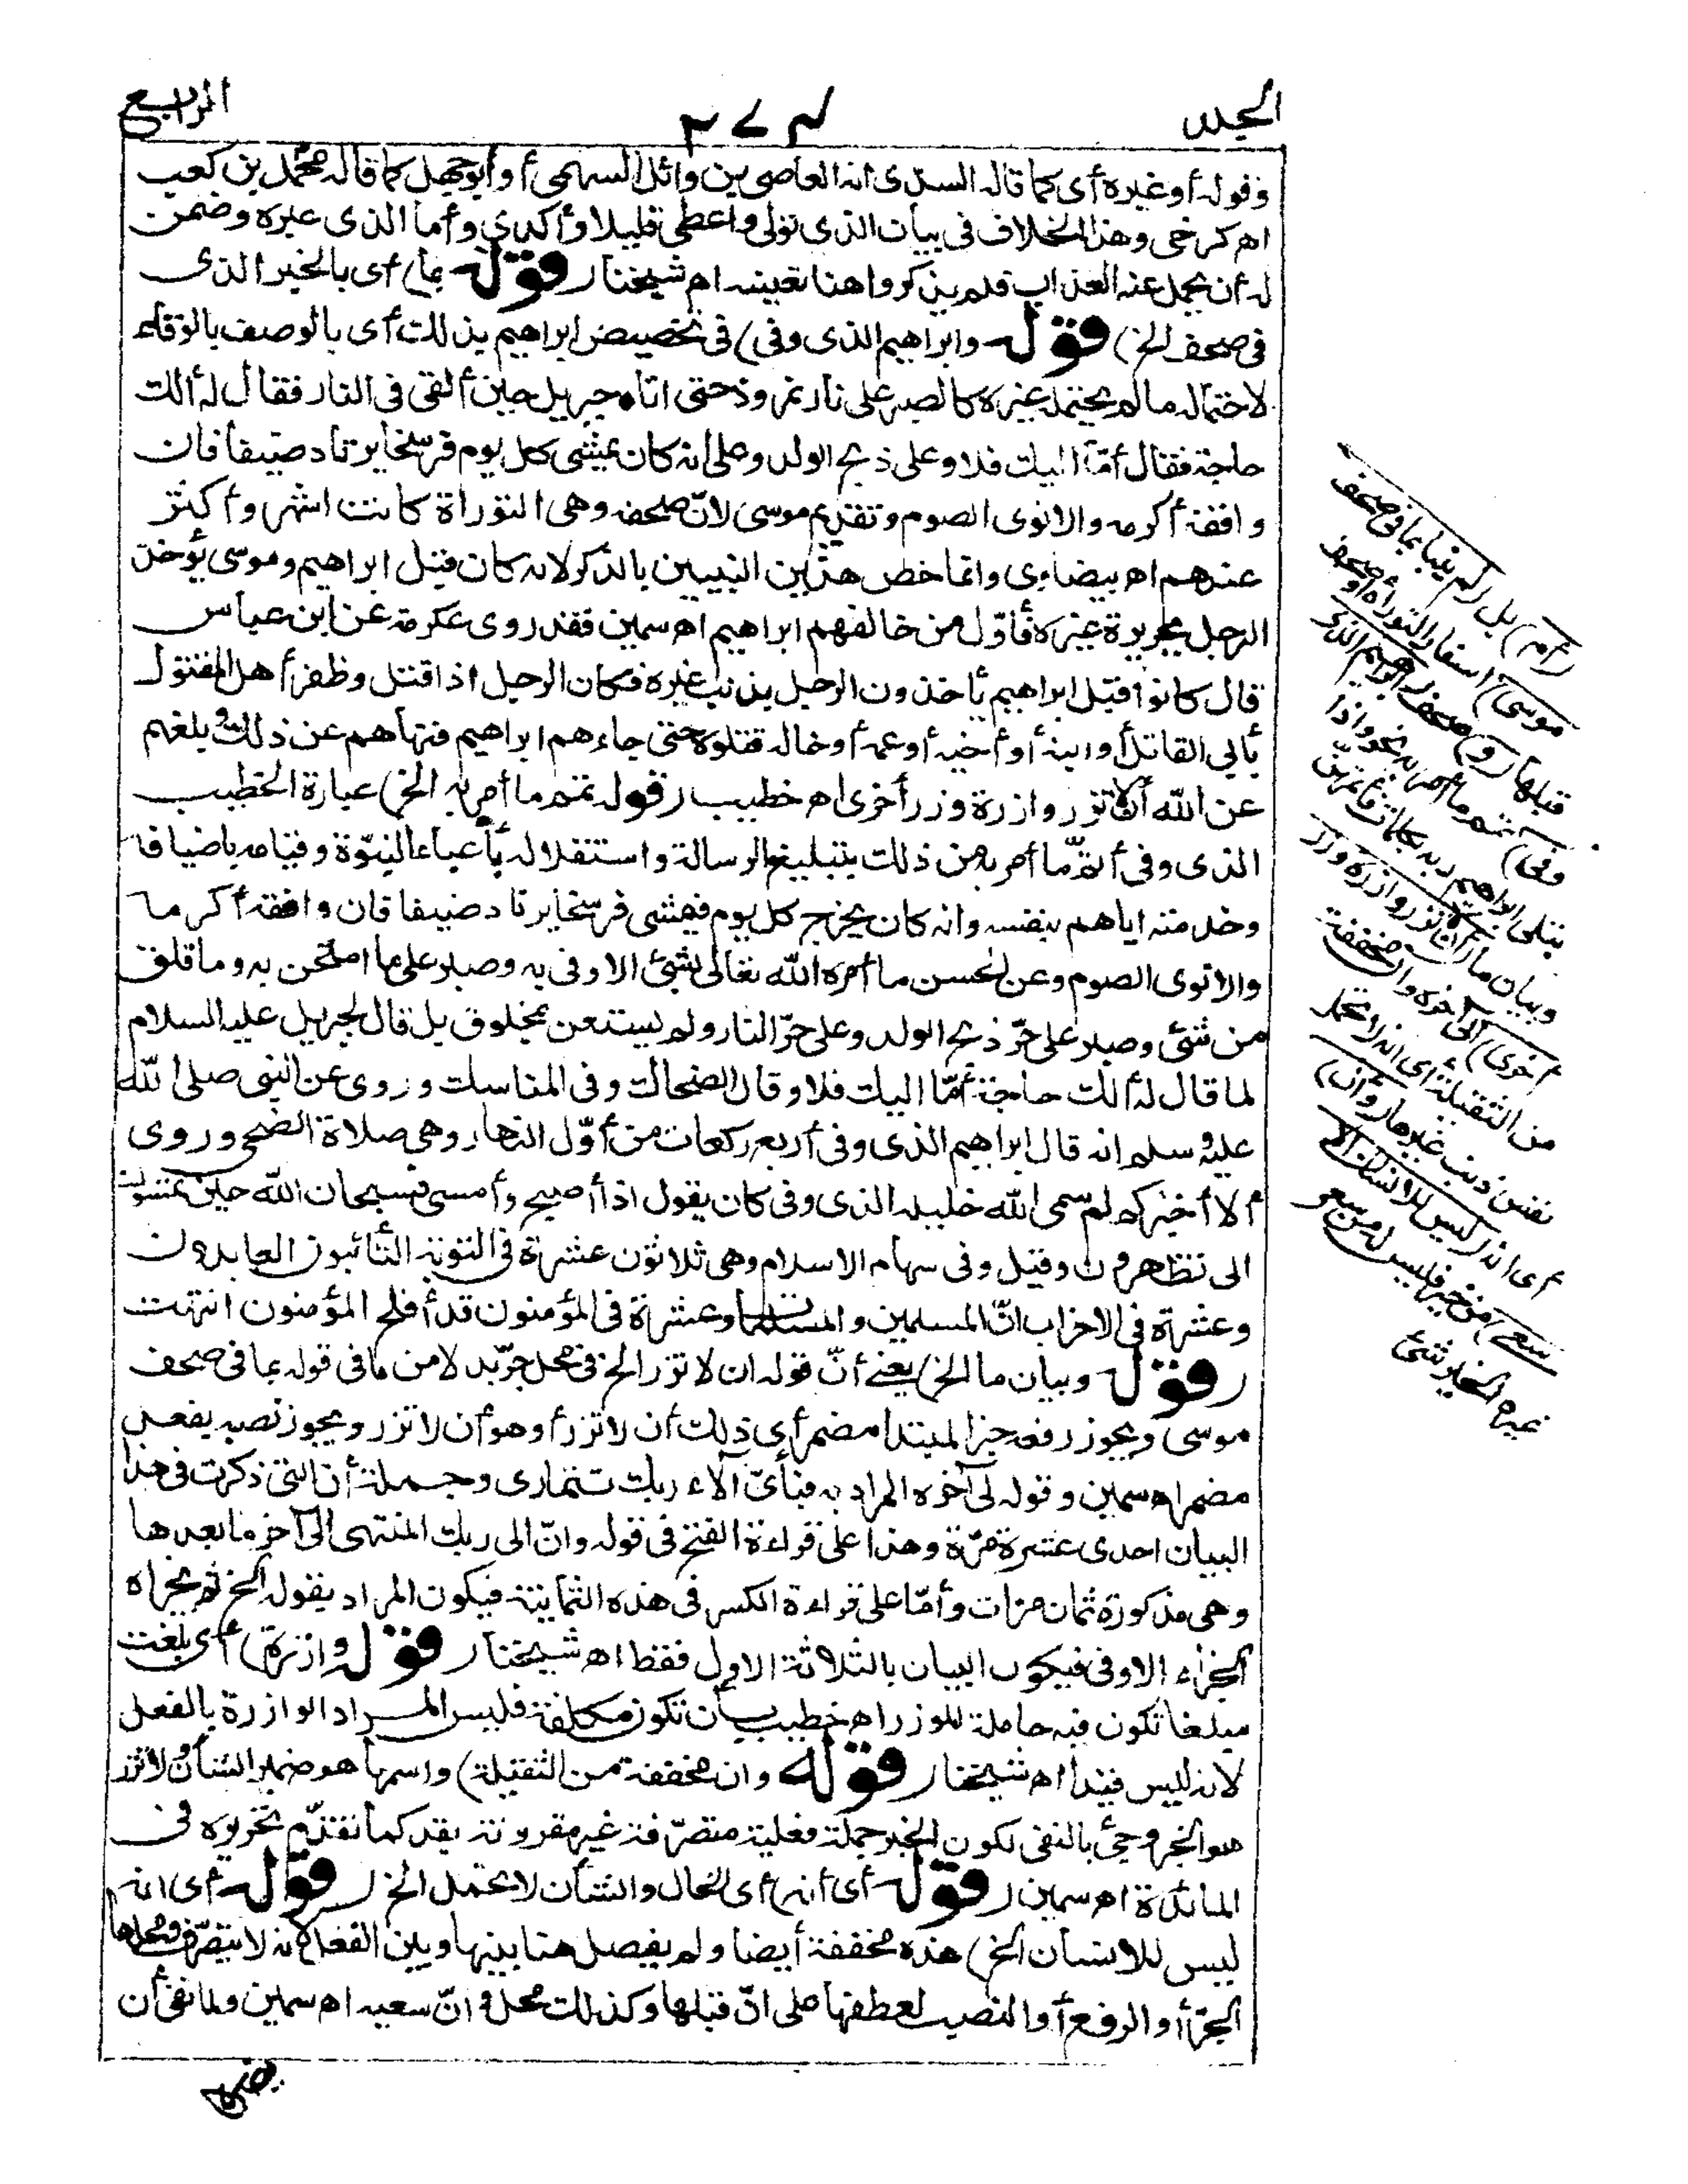 المجلد
٢٧٤
الرابع
وقوله أو غيره أى كما قاله السدى انه العاصى بن وائل السهمى أو أبو جهل كما قاله محمد بن كعب
اه كرخى وهذا الخلاف فى بيان الذى تولى واعطى قليلا وأكدى وأما الذى عيره وضمن
له أن يحمل عنه العذاب فلم يذكروا هنا تعيينه اه شيخنا (قوله بما) أى بالخبر الذى
فى صحف الخ) قوله وابراهيم الذى وفى) فى تخصيص ابراهيم بذلك أى بالوصف بالوفاء
لاحتماله ما لم يحتمله غيره كالصبر على نار نمروذ حتى اتاه جبريل حين ألقى فى النار فقال له ألك
حاجة فقال أمّا اليك فلا وعلى ذبح الولد وعلى انه كان يمشى كل يوم فرسخا يرتاد ضيفا فان
وافقه أكرمه والا نوى الصوم وتقديم موسى لانّ صحفه وهى التوراة كانت اشهر وأكثر
عندهم اه بيضاوى وانما خص هذين النبيين بالذكر لانه كان قبل ابراهيم وموسى يؤخذ
الرجل بجريرة غيره فأوّل من خالفهم ابراهيم اه سمين فقد روى عكرمة عن ابن عباس
قال كانوا قبل ابراهيم يأخذون الرجل بذنب غيره فكان الرجل اذا قتل وظفر أهل المقتول
بأبي القاتل أو ابنه أو أخيه أو عمه أو خاله قتلوه حتى جاءهم ابراهيم فنهاهم عن ذلك وبلغهم
عن الله ألا تزر وازرة وزر أخرى اه خطيب (قوله تمم ما أمر به الخ) عبارة الخطيب
الذى وفى أى تمّ ما أمر به من ذلك بتبليغ الرسالة واستقلاله بأعباء النبوّة وقيامه باضيافه
وخدمته اياهم بنفسه وانه كان يخرج كل يوم فيمشى فرسخا يرتاد ضيفا فان وافقه أكرمه
والا نوى الصوم وعن الحسن ما أمره الله تعالى بشئ الا وفى به وصبر على ما امتحن به وما قلق
من شئ وصبر على حرّ ذبح الولد وعلى حرّ النار ولم يستعن بمخلوق بل قال لجبريل عليه السلام
لما قال له ألك حاجة أمّا اليك فلا وقال الضحاك وفى المناسك وروى عن النبى صلى الله
عليه وسلم انه قال ابراهيم الذى وفى أربع ركعات من أوّل النهار وهى صلاة الضحى وروى
ألا أخبركم لم سمى الله خليله الذى وفى كان يقول اذا أصبح وأمسى فسبحان الله حين تمسون
الى تظهرون وقيل وفى سهام الاسلام وهى ثلاثون عشرة فى التوبة التائبون العابدون
وعشرة فى الاحزاب انّ المسلمين والمسلمات وعشرة فى المؤمنون قد أفلح المؤمنون انتهت
(قوله وبيان ما الخ) يعنى أنّ قوله ان لا تزر الخ فى محل جرّ بدلا من ما فى قوله بما فى صحف
موسى ويجوز رفعه خبرا لمبتدا مضمر أى ذلك أن لا تزر أو هو أن لا تزر ويجوز نصبه بفعل
مضمر اه سمين وقوله الى آخره المراد به فبأىّ آلاء ربك تتمارى وجملة أن التى ذكرت فى هذا
البيان احدى عشرة مرّة وهذا على قراءة الفتح فى قوله وانّ الى ربك المنتهى الى آخر ما بعدها
وهى مذكورة ثمان مرات وأمّا على قراءة الكسر فى هذه الثمانية فيكون المراد بقوله الخ ثم يجزاه
الجزاء الاوفى فيكون البيان بالثلاثة الاول فقط اه شيخنا (قوله وازرة) أى بلغت
مبلغا تكون فيه حاملة للوزر اه خطيب بأن تكون مكلفة فليس المراد الوازرة بالفعل
لانه ليس قيدا اه شيخنا (قوله وان مخففة من الثقيلة) واسمها هو ضمير الشأن ولا تزر
هو الخبر وجئ بالنفى لكون الخبر جملة فعلية متصرّفة غير مقرونة بقد كما تقدّم تحريره فى
المائدة اه سمين (قوله أى أنه) أى الحال والشأن لا تحمل الخ (قوله أى انه
ليس للانسان الخ) هذه مخففة أيضا ولم يفصل هنا بينها وبين الفعل لانه لا يتصرّف ومحلها
الجرّ أو الرفع أو النصب لعطفها على انّ قبلها وكذلك محل وانّ سعيه اه سمين ولما نفى أن
(أم) بل (لم ينبأ بما فى صحف
موسى) اسفار التوراة أو صحف
قبلها (و) صحف (ابراهيم الذى
وفى) تمم ما أمر به نحو واذا
ابتلى ابراهيم ربه بكلمات فأتمهنّ
وبيان ما (أن لا تزر وازرة وزر
أخرى) الى آخره وان مخففة
من الثقيلة أى انه لا تحمل
نفس ذنب غيرها (وأن)
أى انه (ليس للانسان الا ما
سعى) من خير فليس له من سعى
غيره الخير شئ